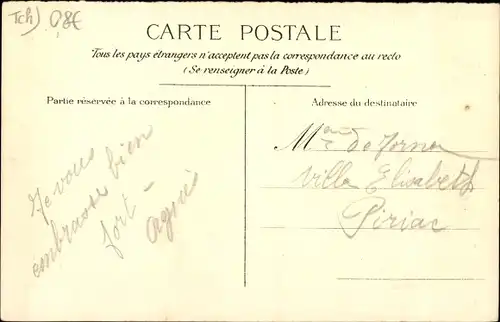 Tch) 08E
CARTE POSTALE
Tous les pays étrangers n'acceptent pas la correspondance au recto
(Se renseigner à la Poste)
Partie réservée à la correspondance
Je vous
embrasse bien
fort -
Adresse du destinataire
de
Villa Elisabeth
Piriac